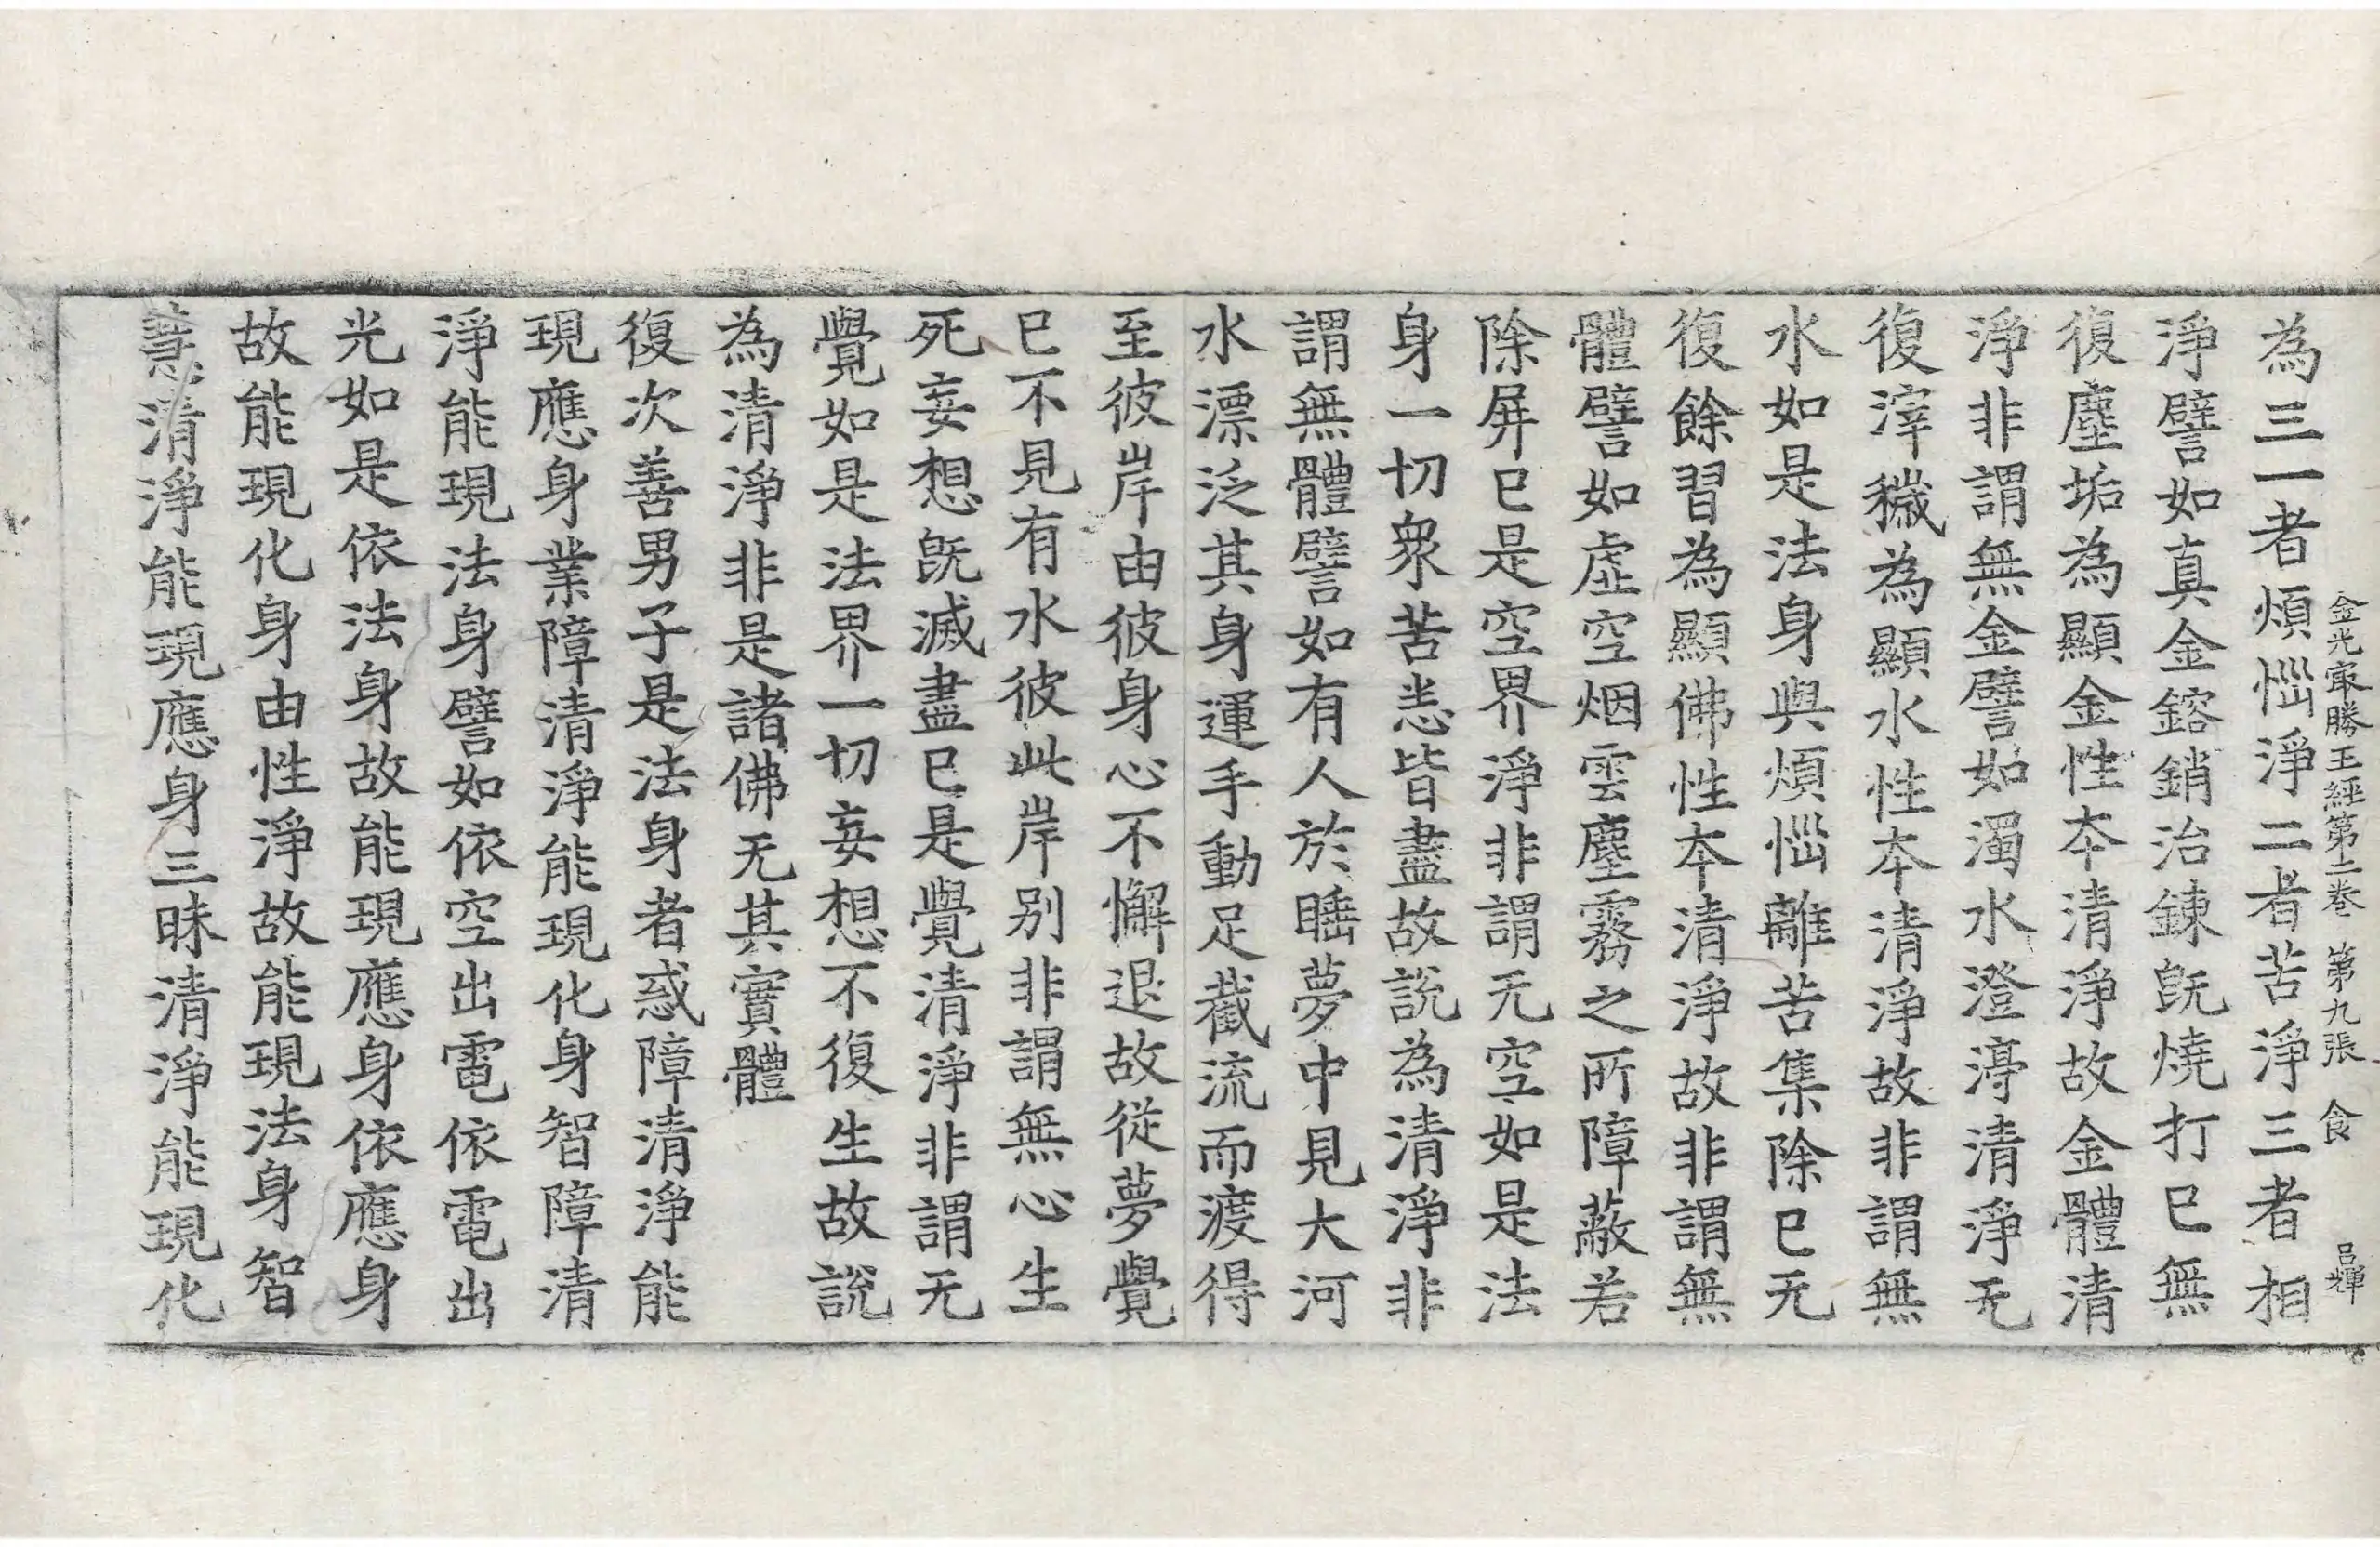 金光㝡勝王經第二卷 第九張 食 呂堚
為三一者煩惱淨二者苦淨三者相
淨譬如真金鎔銷治鍊旣燒打已無
復塵垢為顯金性本清淨故金體清
淨非謂無金譬如濁水澄渟清淨无
復滓穢為顯水性本清淨故非謂無
水如是法身與煩惱離苦集除已无
復餘習為顯佛性本清淨故非謂無
體譬如虛空烟雲塵霧之所障蔽若
除屏已是空界淨非謂无空如是法
身一切衆苦悉皆盡故說為清淨非
謂無體譬如有人於睡夢中見大河
水漂泛其身運手動足截流而渡得
至彼岸由彼身心不懈退故從夢覺
已不見有水彼此岸別非謂無心生
死妄想旣滅盡已是覺清淨非謂无
覺如是法界一切妄想不復生故說
為清淨非是諸佛无其實體
復次善男子是法身者惑障清淨能
現應身業障清淨能現化身智障清
淨能現法身譬如依空出電依電出
光如是依法身故能現應身依應身
故能現化身由性淨故能現法身智
慧清淨能現應身三昧清淨能現化